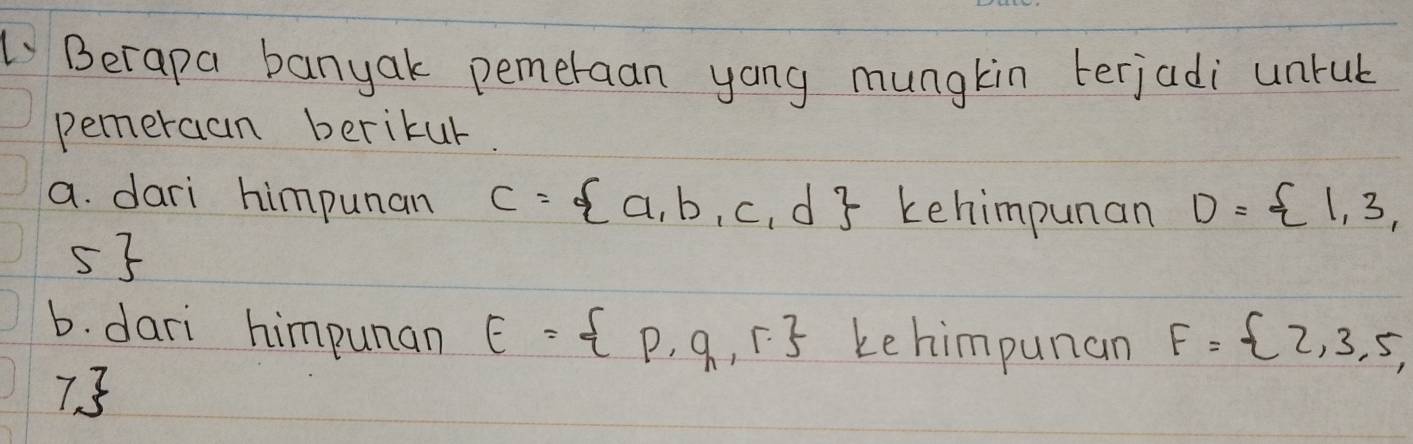 1. Berapa banyak pemetaan yang mungkin terjadi untuk
pemetaan berikut.
a. dari himpunan C = {a, b, c, d} kehimpunan D = {1, 3,
5}
b. dari himpunan E = {p, q, r.} kehimpunan F = {2, 3, 5,
7.}